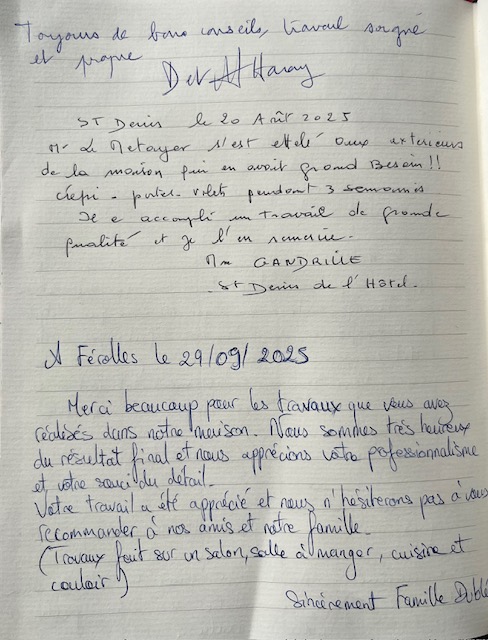 Toujours de bons conseils, travail soigné
et propre
ST Denis le 20 Août 2025
Mr Le Metayer s'est attelé aux exterieurs
de la maison qui en avait grand Besoin !!
crépi - portes - Volets pendant 3 semaines
Il a accompli un travail de grande
qualité et je l'en remercie.
Mme GANDRILLE
St Denis de l'Hôtel.
A Férolles le 29/09/2025
Merci beaucoup pour les travaux que vous avez
réalisés dans notre maison. Nous sommes très heureux
du résultat final et nous apprécions votre professionnalisme
et votre souci du détail.
Votre travail a été apprécié et nous n'hésiterons pas à vous
recommander à nos amis et notre famille.
(Travaux fait sur un salon, salle à manger, cuisine et
couloir)
Sincèrement Famille